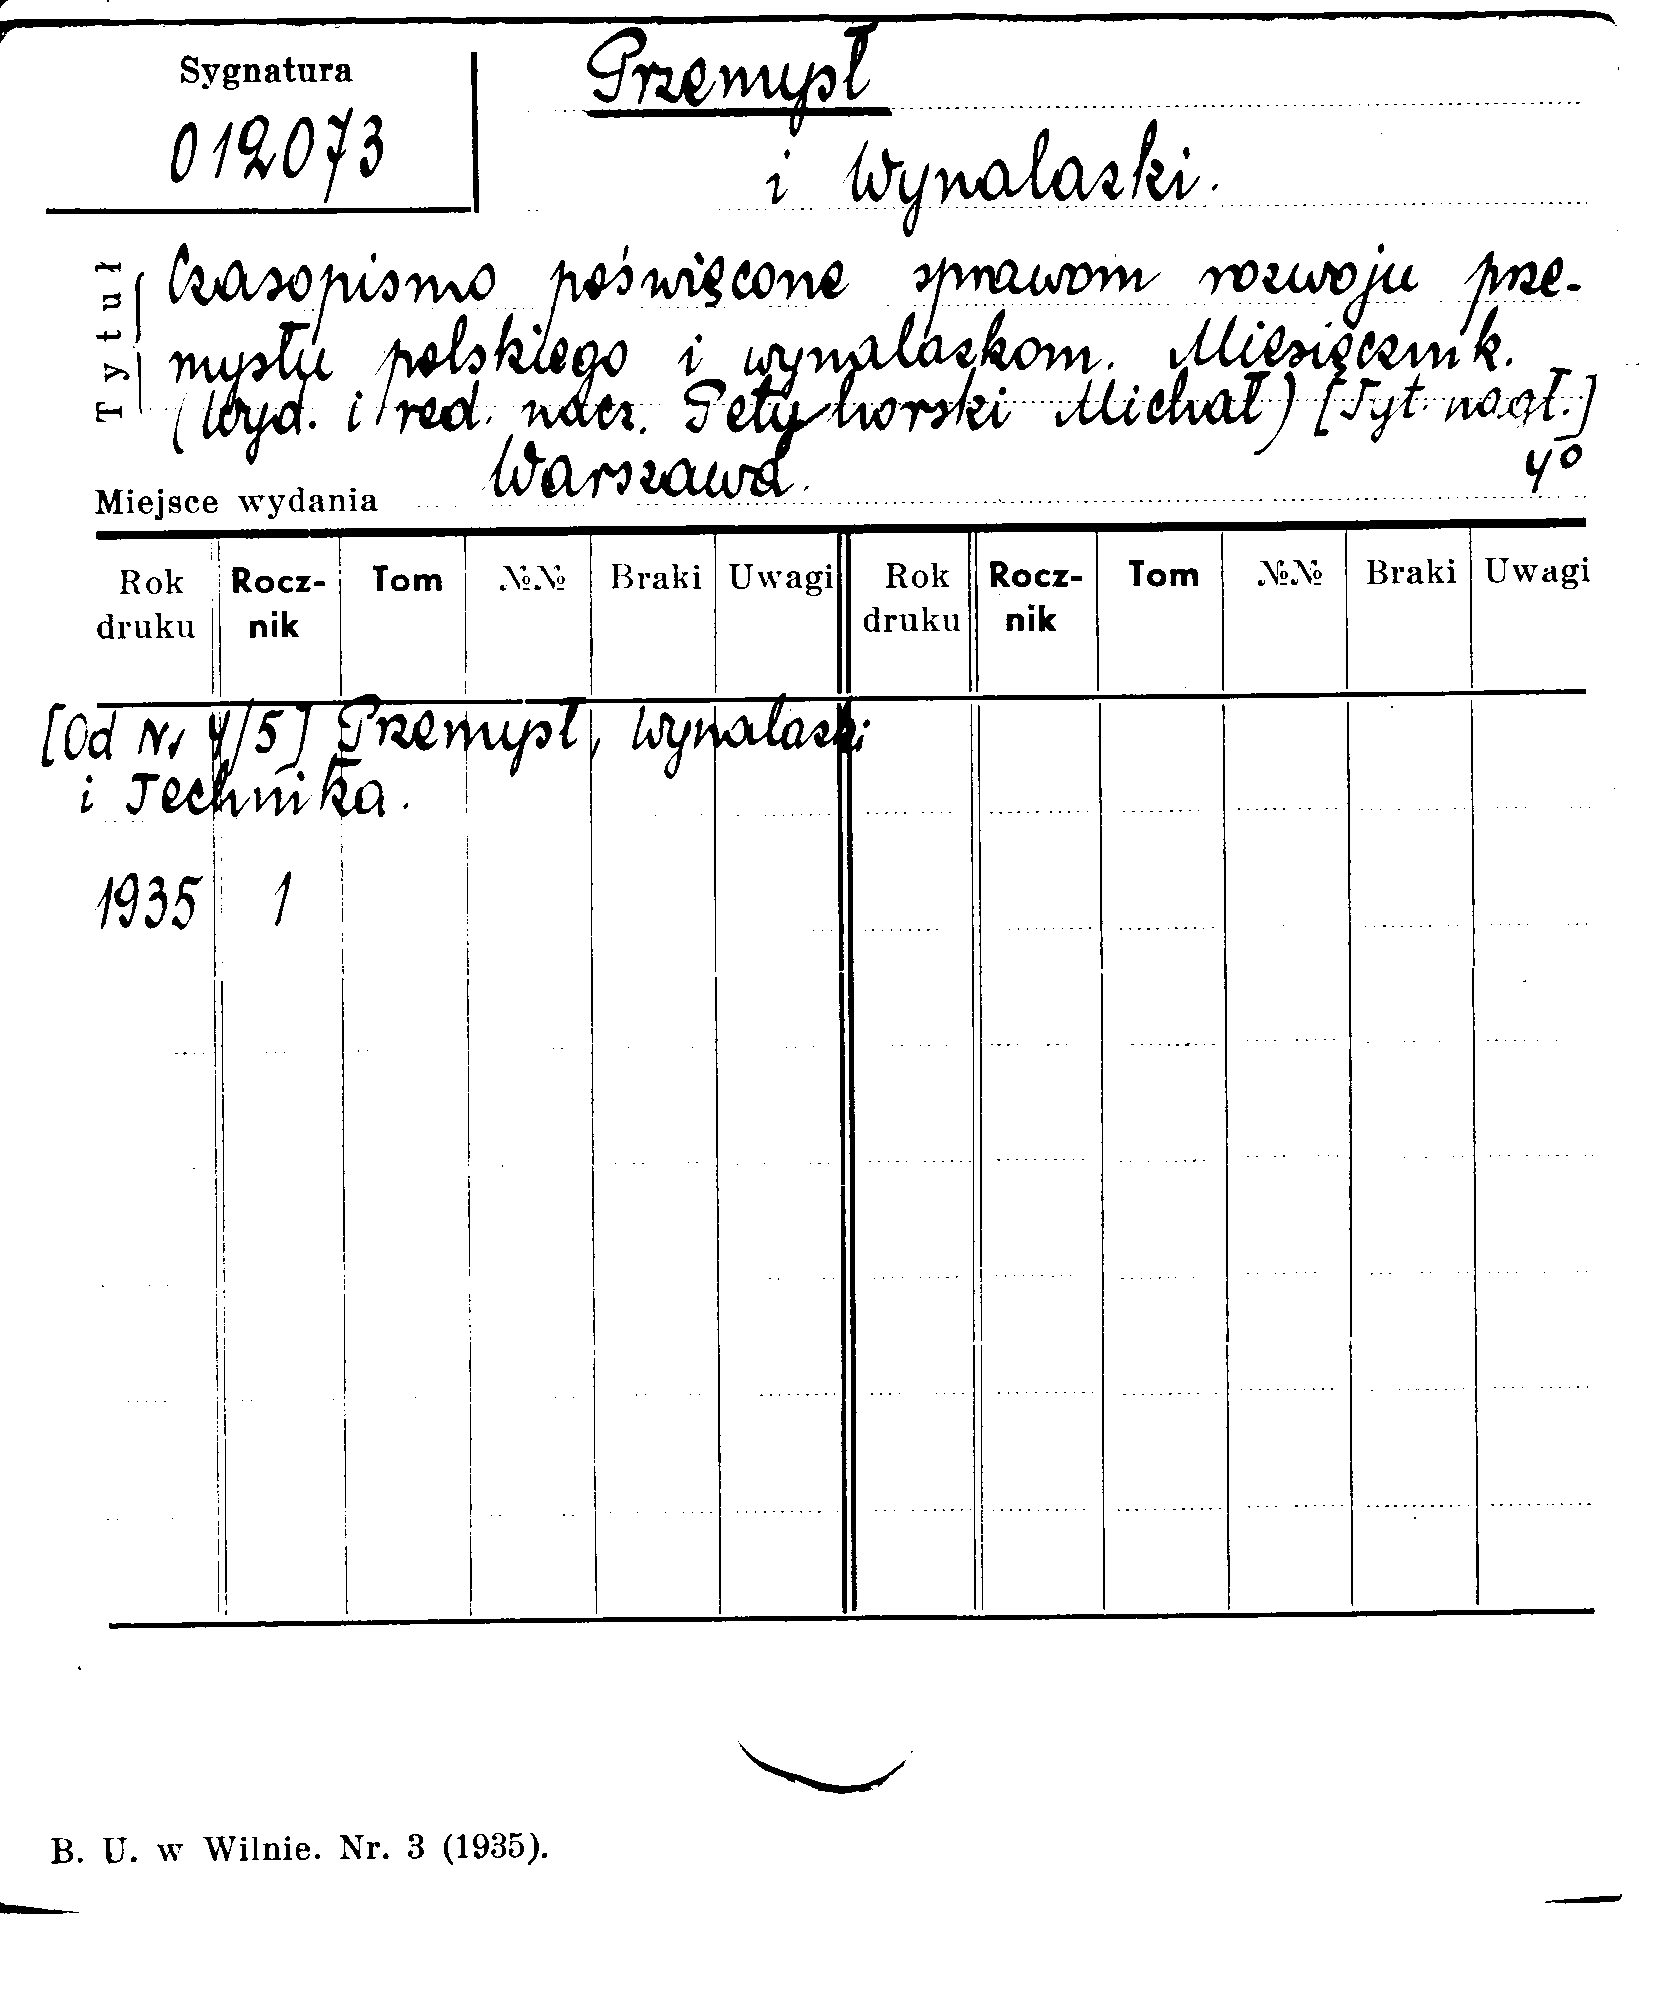 Sygnatura
012073
Przemysł
i Wynalazki.
Tytuł
Czasopismo poświęcone sprawom rozwoju prze-
mysłu polskiego i wynalazkom. Miesięcznik.
(Wyd. i red. nacz. Petyhorski Michał) [Tyt. nagł.]
Miejsce wydania Warszawa. 4º
Rok druku Rocz-nik Tom №№ Braki Uwagi Rok druku Rocz-nik Tom №№ Braki Uwagi
[Od Nr 4/5] Przemysł, Wynalazki
i Technika.
1935 1
B. U. w Wilnie. Nr. 3 (1935).